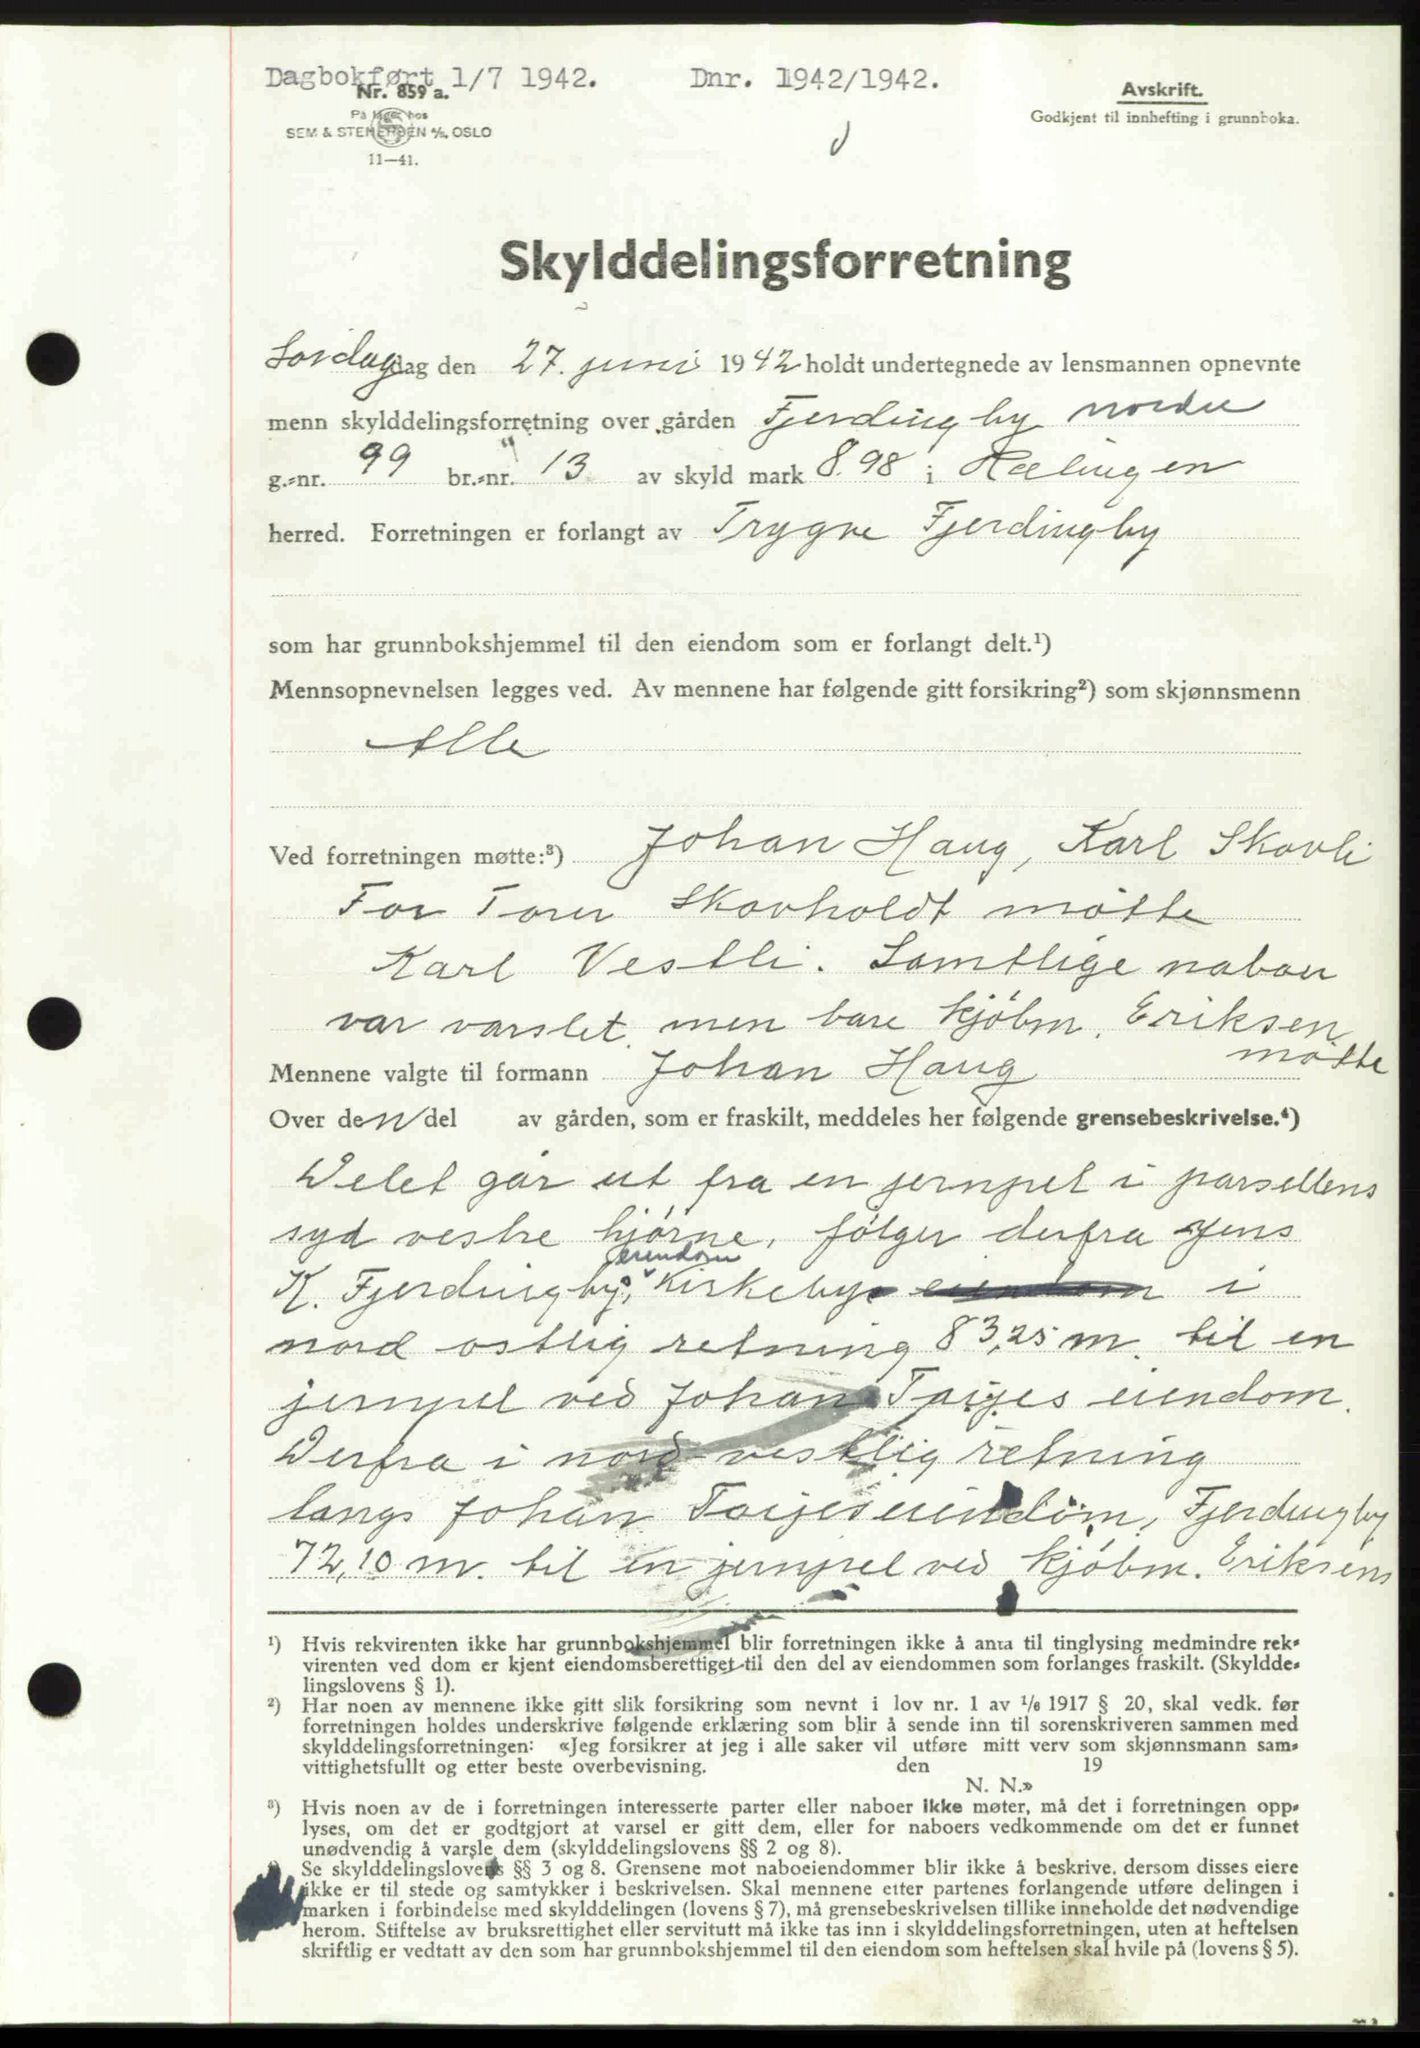 Dagbokført 1/7 1942. Dnr. 1942/1942.
Nr. 859 a.
På lager hos
SEM & STENERSEN A/S, OSLO
11—41.
Avskrift.
Godkjent til innhefting i grunnboka.
Skylddelingsforretning
Lördag dag den 27. juni 1942 holdt undertegnede av lensmannen opnevnte
menn skylddelingsforretning over gården Fjerdingby nordre
g.-nr. 99 br.-nr. 13 av skyld mark 8.98 i Rælingen
herred. Forretningen er forlangt av Trygve Fjerdingby
som har grunnbokshjemmel til den eiendom som er forlangt delt.¹)
Mennsopnevnelsen legges ved. Av mennene har følgende gitt forsikring²) som skjønnsmenn
Alle
Ved forretningen møtte:³) Johan Haug, Karl Skovli
For Skovholdt møtte
Karl Vestli. Samtlige naboer
var varslet, men bare kjöbm. Eriksen
møtte
Mennene valgte til formann Johan Haug
Over den del av gården, som er fraskilt, meddeles her følgende grensebeskrivelse.⁴)
Delet går ut fra en jernpel i parsellens
syd vestre hjörne, fölger derfra Jens
eiendom
K. Fjerdingby, Kirkeby i
nord ostlig retning 83,25 m. til en
jernpel ved Johan Taijes eiendom.
Derfra i nord vestlig retning
langs Johan Taijes eiendom, Fjerdingby
72,10 m. til en jernpel ved kjöbm. Eriksens
¹) Hvis rekvirenten ikke har grunnbokshjemmel blir forretningen ikke å anta til tinglysing medmindre rek-
virenten ved dom er kjent eiendomsberettiget til den del av eiendommen som forlanges fraskilt. (Skyldde-
lingslovens § 1).
²) Har noen av mennene ikke gitt slik forsikring som nevnt i lov nr. 1 av ¹/₆ 1917 § 20, skal vedk. før
forretningen holdes underskrive følgende erklæring som blir å sende inn til sorenskriveren sammen med
skylddelingsforretningen: «Jeg forsikrer at jeg i alle saker vil utføre mitt verv som skjønnsmann sam-
vittighetsfullt og etter beste overbevisning. den 19
N. N.»
³) Hvis noen av de i forretningen interesserte parter eller naboer ikke møter, må det i forretningen opp-
lyses, om det er godtgjort at varsel er gitt dem, eller for naboers vedkommende om det er funnet
unødvendig å varsle dem (skylddelingslovens §§ 2 og 8).
Se skylddelingslovens §§ 3 og 8. Grensene mot naboeiendommer blir ikke å beskrive, dersom disses eiere
ikke er til stede og samtykker i beskrivelsen. Skal mennene etter partenes forlangende utføre delingen i
marken i forbindelse med skylddelingen (lovens § 7), må grensebeskrivelsen tillike inneholde det nødvendige
herom. Stiftelse av bruksrettighet eller servitutt må ikke tas inn i skylddelingsforretningen, uten at heftelsen
skriftlig er vedtatt av den som har grunnbokshjemmel til den eiendom som heftelsen skal hvile på (lovens § 5).